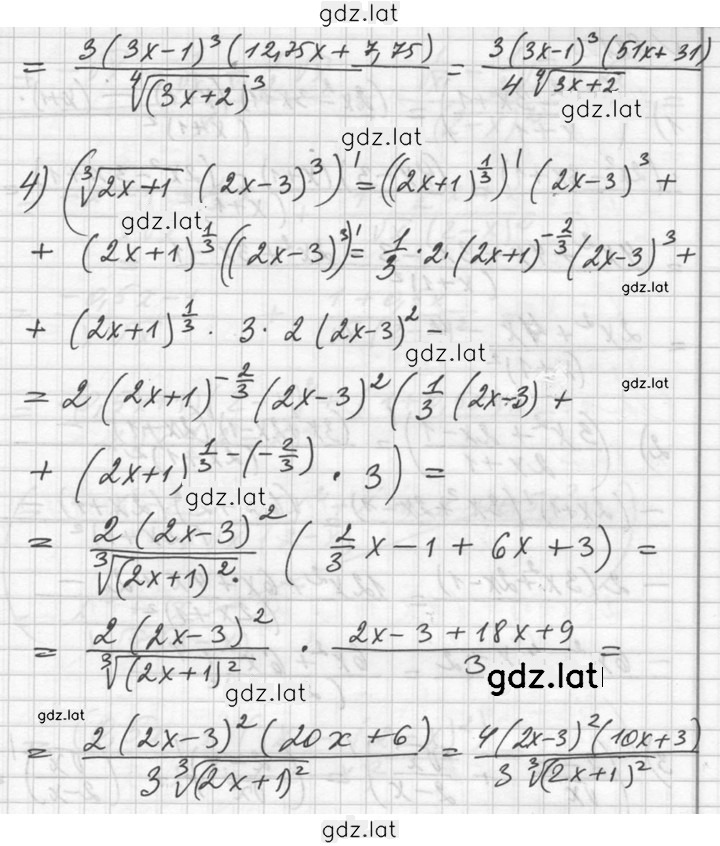 gdz.lat
= 3(3x-1)³(12,75x + 7,75) / ∜(3x+2)³ = 3(3x-1)³(51x+31) / 4∜3x+2
gdz.lat
gdz.lat
4) (∛2x+1 (2x-3)³)' = ((2x+1)^{1/3})' (2x-3)³ +
gdz.lat
+ (2x+1)^{1/3} ((2x-3)³)' = 1/3 · 2 · (2x+1)^{-2/3} (2x-3)³ +
gdz.lat
+ (2x+1)^{1/3} · 3 · 2 (2x-3)² -
gdz.lat
= 2 (2x+1)^{-2/3} (2x-3)² (1/3 (2x-3) +
gdz.lat
+ (2x+1)^{1/3 - (-2/3)} · 3) =
gdz.lat
= 2(2x-3)² / ∛(2x+1)². ( 2/3 x - 1 + 6x + 3) =
= 2(2x-3)² / ∛(2x+1)² · 2x-3+18x+9 / 3 =
gdz.lat
gdz.lat
gdz.lat
= 2(2x-3)²(20x+6) / 3∛(2x+1)² = 4(2x-3)²(10x+3) / 3∛(2x+1)²
gdz.lat